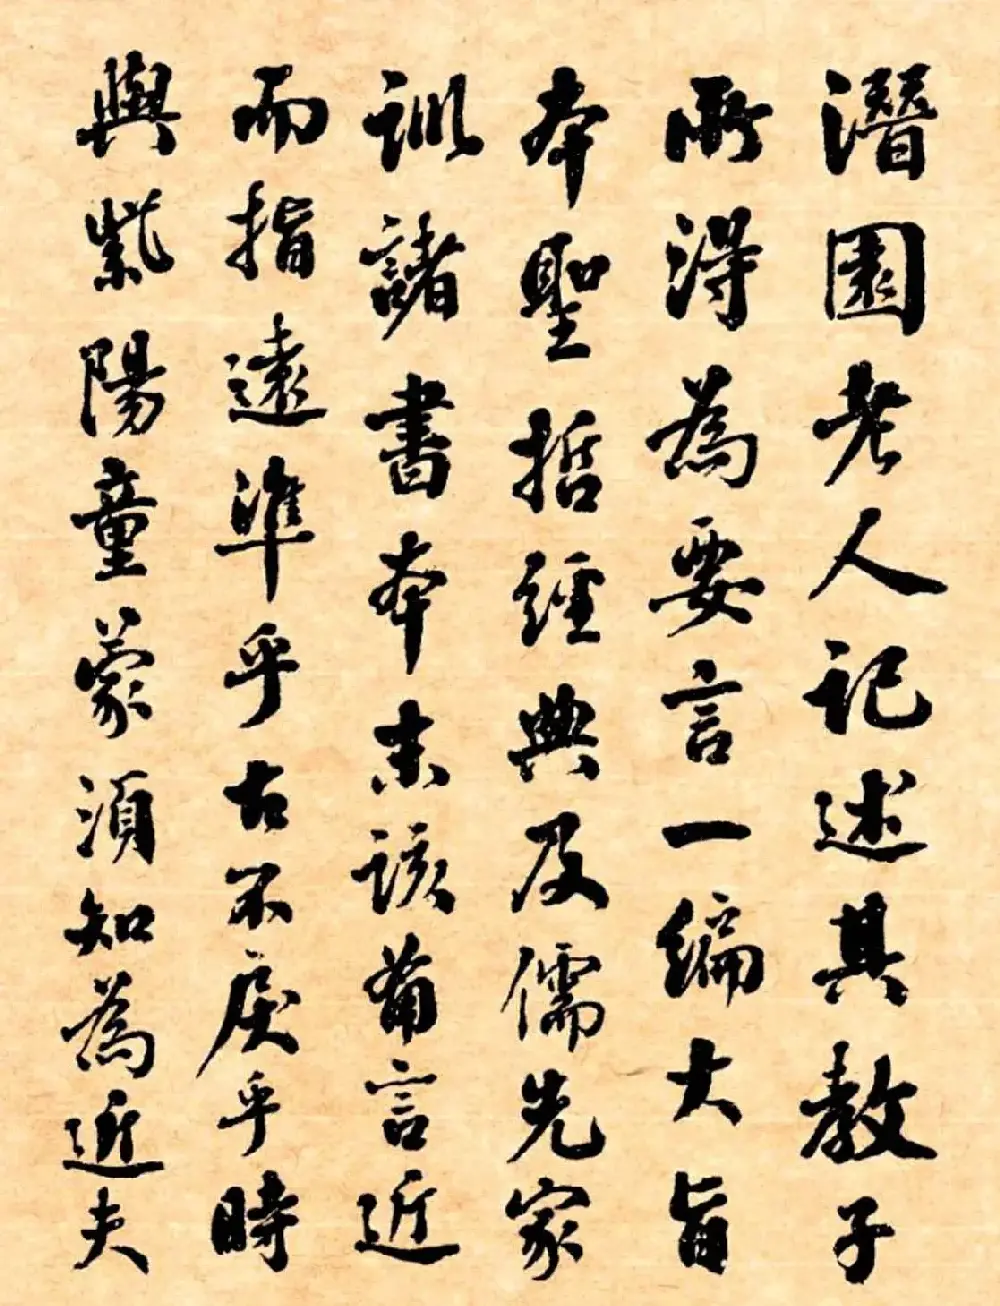 潛園老人記述其教子
所得為要言一編大旨
本聖哲經典及儒先家
訓諸書本末該葡言近
而指遠準乎古不戾乎時
與紫陽童蒙須知為近夫